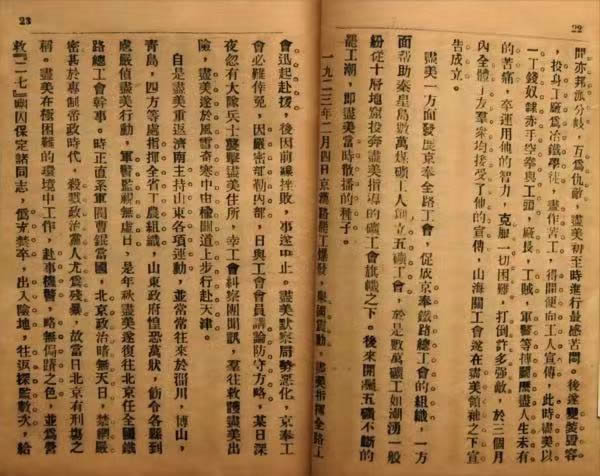 22
間亦邦派分岐,互爲仇敵,盡美初至時進行最感苦悶。後遂變裝毀容
,投身工廠爲冶鐵學徒,盡作苦工,得間便向工人宣傳,此時盡美以
一工錢奴隸赤手空拳與工頭,廠長,工賊,軍警等搏鬭歷盡人生未有
的苦痛,卒運用他的智力,克服一切困難,打倒許多强敵,於三個月
內全體工友羣衆均接受了他的宣傳,山海關工會遂在盡美領袖之下宣
告成立。
盡美一方面發展京奉全路工會,促成京奉鐵路總工會的組織,一方
面帮助秦皇島數萬煤礦工人創立五礦工會,於是數萬礦工如潮湧一般
紛從十層地窟投奔盡美指導的礦工會旗幟之下。後來開灤五礦不斷的
罷工潮,即盡美當時散播的種子。
一九二三年二月四日京漢路罷工爆發,與國震動,盡美指揮全路工
23
會迅起赴援,後因前線挫敗,事遂中止。盡美默察局勢惡化,京奉工
會必難倖免,因嚴密部勒內部,日與工會會員講論防守方略,某日深
夜忽有大隊兵士襲擊盡美住所,幸工會糾察團聞訊,羣往救護盡美出
險,盡美遂於風雪奇寒中由榆關道上步行赴天津。
自是盡美重返濟南主持山東各項運動,並常常往來於淄川,博山,
青島,四方等處指揮全省工農組織,山東政府惶恐萬狀,飭令各縣到
處嚴偵盡美行動,軍警監視無虛日,是年秋盡美遂復往北京任全國鐵
路總工會幹事。時正直系軍閥曹錕當國,北京政治暗無天日,禁網嚴
密甚於專制帝政時代,殺戮政治黨人尤爲殘暴,故當日北京有刑場之
稱。盡美在極困難的環境中工作,赴事機警,略無侷蹐之色,並爲營
救『二七』嗣囚保定諸同志,僞充禁卒,出入險地,往返探監數次,給